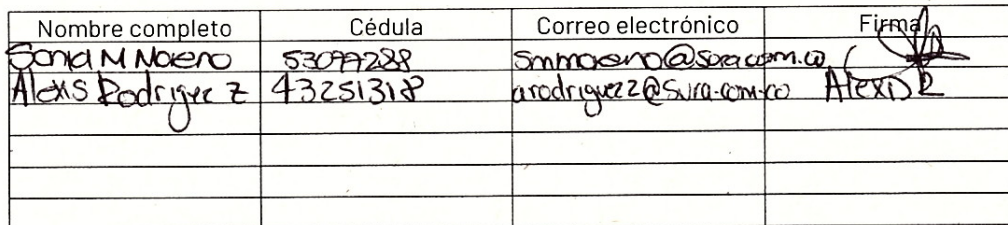 Nombre completo Cédula Correo electrónico Firma
Sonia M Moreno 53077288 smmoreno@sura.com.co
Alexis Rodriguez 43251318 arodriguezz@sura.com.co Alexis R